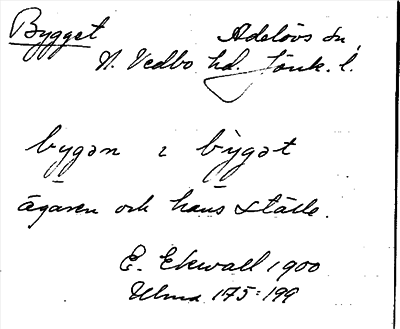 Bygget Adelövs sn,
N. Vedbo hd. Jönk. l.
bygən i bỳgət
ägaren och hans ställe.
E. Ekwall 1900
Ulma 175:199